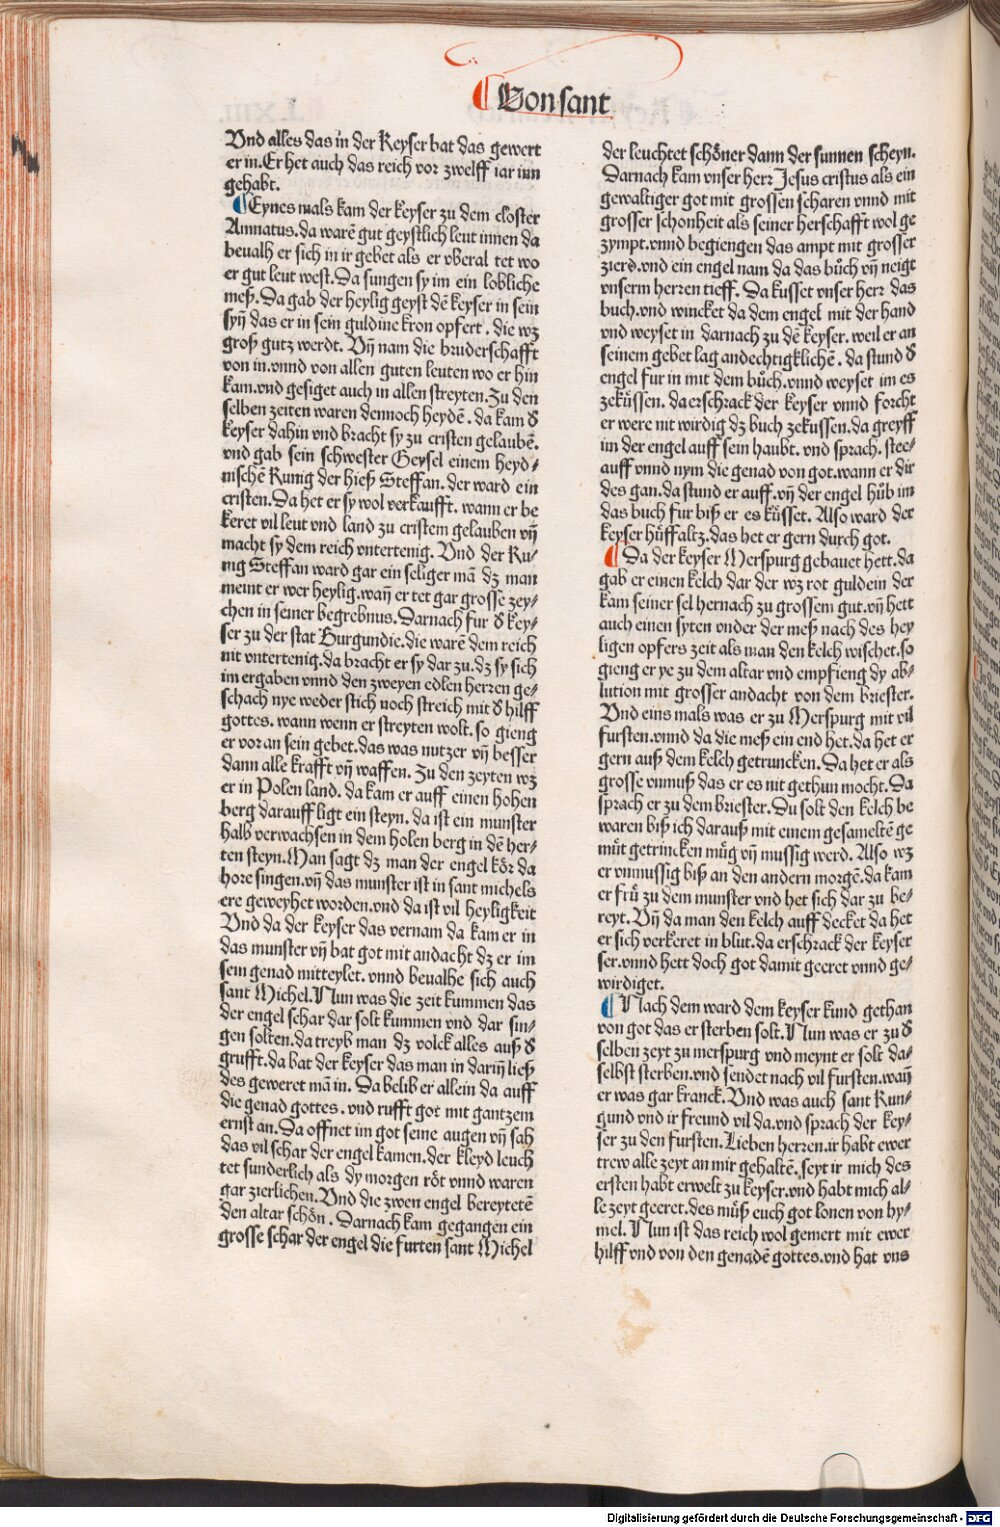 Von sant
Vnd alles das in der Keyser bat das gewert
er in. Er het auch das reich vor zwelff iar inn
gehabt.
Eynes mals kam der keyser zu dem closter
Amnatus. da warē gut geystlich leut innen da
beualh er sich in ir gebet als er vberal tet wo
er gut leut west. Da sungen sy im ein lobliche
meß. Da gab der heylig geyst dē keyser in sein
syn̄ das er in sein guldine kron opfert. die wz
groß gutz werdt. Vn̄ nam die bruderschafft
von in. vnnd von allen guten leuten wo er hin
kam. vnd gesiget auch in allen streyten. Zu den
selben zeiten waren dennoch heydē. da kam d̕
keyser dahin vnd bracht sy zu cristen gelaubē.
vnd gab sein schwester Geysel einem heyd⸗
nischē Kunig der hieß Steffan. der ward ein
cristen. Da het er sy wol verkaufft. wann er be
keret vil leut vnd land zu cristem gelauben vn̄
macht sy dem reich vntertenig. Vnd der Ku⸗
nig Steffan ward gar ein seliger mā dz man
meint er wer heylig. wan̄ er tet gar grosse zey⸗
chen in seiner begrebnus. Darnach fur d̕ key⸗
ser zu der stat Burgundie. die warē dem reich
nit vntertenig. da bracht er sy dar zu. dz sy sich
im ergaben vnnd den zweyen edlen herren ge⸗
schach nye weder stich noch streich mit d̕ hilff
gottes. wann wenn er streyten wolt. so gieng
er vor an sein gebet. das was nutzer vn̄ besser
dann alle krafft vn̄ waffen. Zu den zeyten wz
er in Polen land. da kam er auff einen hohen
berg darauff ligt ein steyn. da ist ein munster
halb verwachsen in dem holen berg in dē her⸗
ten steyn. Man sagt dz man der engel kör da
hore singen. vn̄ das munster ist in sant michels
ere geweyhet worden. vnd da ist vil heyligkeit
Vnd da der keyser das vernam da kam er in
das munster vn̄ bat got mit andacht dz er im
sein genad mitteylet. vnnd beualhe sich auch
sant Michel. Nun was die zeit kummen das
der engel schar dar solt kummen vnd dar sin⸗
gen solten. da treyb man dz volck alles auß d̕
grufft. da bat der keyser das man in darin̄ ließ
des geweret mā in. Da belib er allein da auff
die genad gottes. vnd rufft got mit gantzem
ernst an. Da offnet im got seine augen vn̄ sah
das vil schar der engel kamen. der kleyd leuch
tet sunderlich als dy morgen röt vnnd waren
gar zierlichen. Vnd die zwen engel bereytetē
den altar schön. Darnach kam gegangen ein
grosse schar der engel die furten sant Michel
der leuchtet schöner dann der sunnen scheyn.
Darnach kam vnser herr Jesus cristus als ein
gewaltiger got mit grossen scharen vnnd mit
grosser schonheit als seiner herschafft wol ge
zympt. vnnd begiengen das ampt mit grosser
zierd. vnd ein engel nam da das bůch vn̄ neigt
vnserm herren tieff. Da kusset vnser herr das
buch. vnd wincket da dem engel mit der hand
vnd weyset in darnach zu dē keyser. weil er an
seinem gebet lag andechtigklichē. da stund d̕
engel fur in mit dem bůch. vnnd weyset im es
zeküssen. da erschrack der keyser vnnd forcht
er were nit wirdig dz buch zekussen. da greyff
im der engel auff sein haubt. vnd sprach. stee⸗
auff vnnd nym die genad von got. wann er dir
des gan. da stund er auff. vn̄ der engel hůb im
das buch fur biß er es küsset. Also ward der
keyser hüffaltz. das het er gern durch got.
Da der keyser Merspurg gebauet hett. da
gab er einen kelch dar der wz rot guldein der
kam seiner sel hernach zu grossem gut. vn̄ hett
auch einen syten vnder der meß nach des hey
ligen opfers zeit als man den kelch wischet. so
gieng er ye zu dem altar vnd empfieng dy ab⸗
lution mit grosser andacht von dem briester.
Vnd eins mals was er zu Merspurg mit vil
fursten. vnnd da die meß ein end het. da het er
gern auß dem kelch getruncken. Da het er als
grosse vnmuß das er es nit gethun mocht. Da
sprach er zu dem briester. Du solt den kelch be
waren biß ich darauß mit einem gesameltē ge
müt getrincken müg vn̄ mussig werd. Also wz
er vnmussig biß an den andern morgē. da kam
er frů zu dem munster vnd het sich dar zu be⸗
reyt. Vn̄ da man den kelch auff decket da het
er sich verkeret in blut. da erschrack der keyser
ser. vnnd hett doch got damit geeret vnnd ge⸗
wirdiget.
Nach dem ward dem keyser kund gethan
von got das er sterben solt. Nun was er zu d̕
selben zeyt zu merspurg vnd meynt er solt da⸗
selbst sterben. vnd sendet nach vil fursten. wan̄
er was gar kranck. Vnd was auch sant Kun⸗
gund vnd ir freund vil da. vnd sprach der key⸗
ser zu den fursten. Lieben herren. ir habt ewer
trew alle zeyt an mir gehaltē. seyt ir mich des
ersten habt erwelt zu keyser. vnd habt mich al⸗
le zeyt geeret. des müß euch got lonen von hy⸗
mel. Nun ist das reich wol gemert mit ewer
hilff vnd von den genadē gottes. vnd hat vns
Digitalisierung gefördert durch die Deutsche Forschungsgemeinschaft - DFG